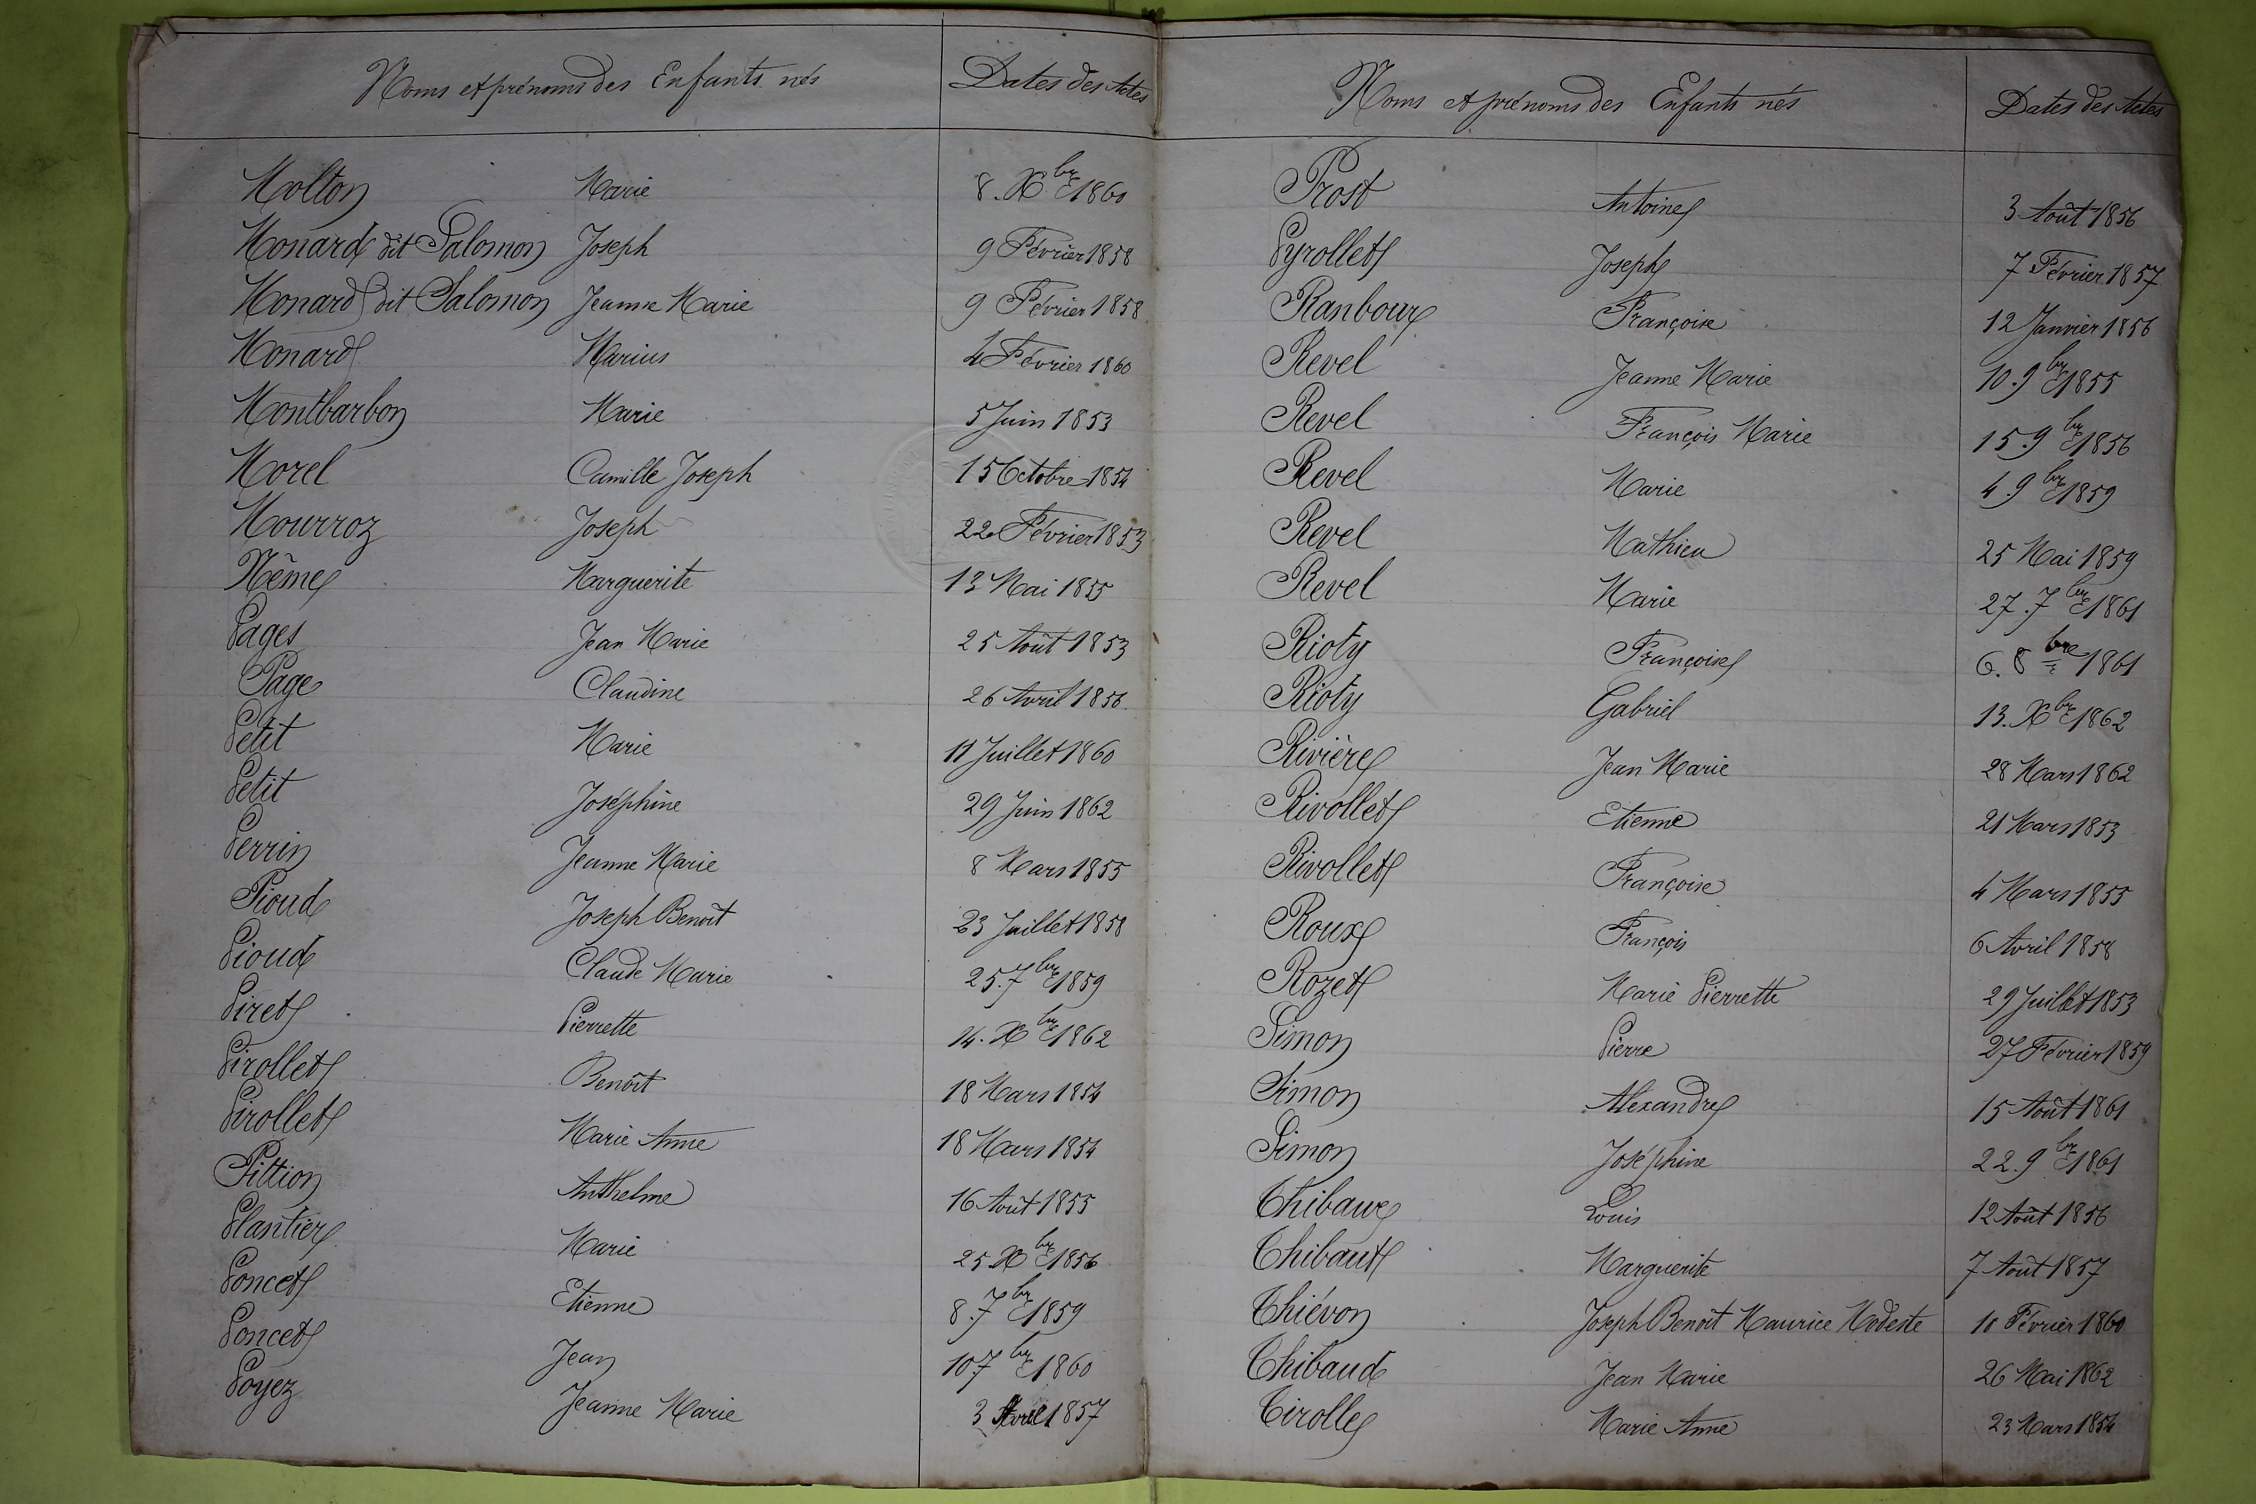 Noms et prénoms des Enfants nés Dates des Actes
Molton Marie 8. Xbre 1860
Monard dit Salomon Joseph 9 Février 1858
Monard dit Salomon Jeanne Marie 9 Février 1858
Monard Marius 4 Février 1860
Montbarbon Marie 5 Juin 1853
Morel Camille Joseph 15 Octobre 1854
Mourroz Joseph 22 Février 1853
Même Marguerite 13 Mai 1855
Pages Jean Marie 25 Août 1853
Page Claudine 26 Avril 1856
Petit Marie 11 Juillet 1860
Petit Joséphine 29 Juin 1862
Perrin Jeanne Marie 8 Mars 1855
Pioud Joseph Benoît 23 Juillet 1858
Pioud Claude Marie 25. 7bre 1859
Piret Pierrette 14. Xbre 1862
Pirollet Benoît 18 Mars 1854
Pirollet Marie Anne 18 Mars 1854
Pittion Anthelme 16 Août 1855
Plantier Marie 25. Xbre 1856
Poncet Etienne 8. 7bre 1859
Poncet Jean 10 7bre 1860
Poyez Jeanne Marie 3 Avril 1857
Noms et prénoms des Enfants nés Dates des Actes
Prost Antoine 3 Août 1856
Pyrollet Joseph 7 Février 1857
Ranboux Françoise 12 Janvier 1856
Revel Jeanne Marie 10. 9bre 1855
Revel François Marie 15. 9bre 1856
Revel Marie 4 9bre 1859
Revel Mathieu 25 Mai 1859
Revel Marie 27. 7bre 1861
Rioty Françoise 6. 8bre 1861
Rioty Gabriel 13. Xbre 1862
Rivière Jean Marie 28 Mars 1862
Rivollet Etienne 21 Mars 1853
Rivollet Françoise 4 Mars 1855
Roux François 6 Avril 1858
Rozet Marie Pierrette 29 Juillet 1853
Simon Pierre 27 Février 1859
Simon Alexandre 15 Août 1861
Simon Joséphine 22. 9bre 1861
Thibaux Louis 12 Août 1856
Thibaut Marguerite 7 Août 1857
Thiévon Joseph Benoît Maurice Modeste 10 Février 1860
Thibaud Jean Marie 26 Mai 1862
Tirolle Marie Anne 23 Mars 1854